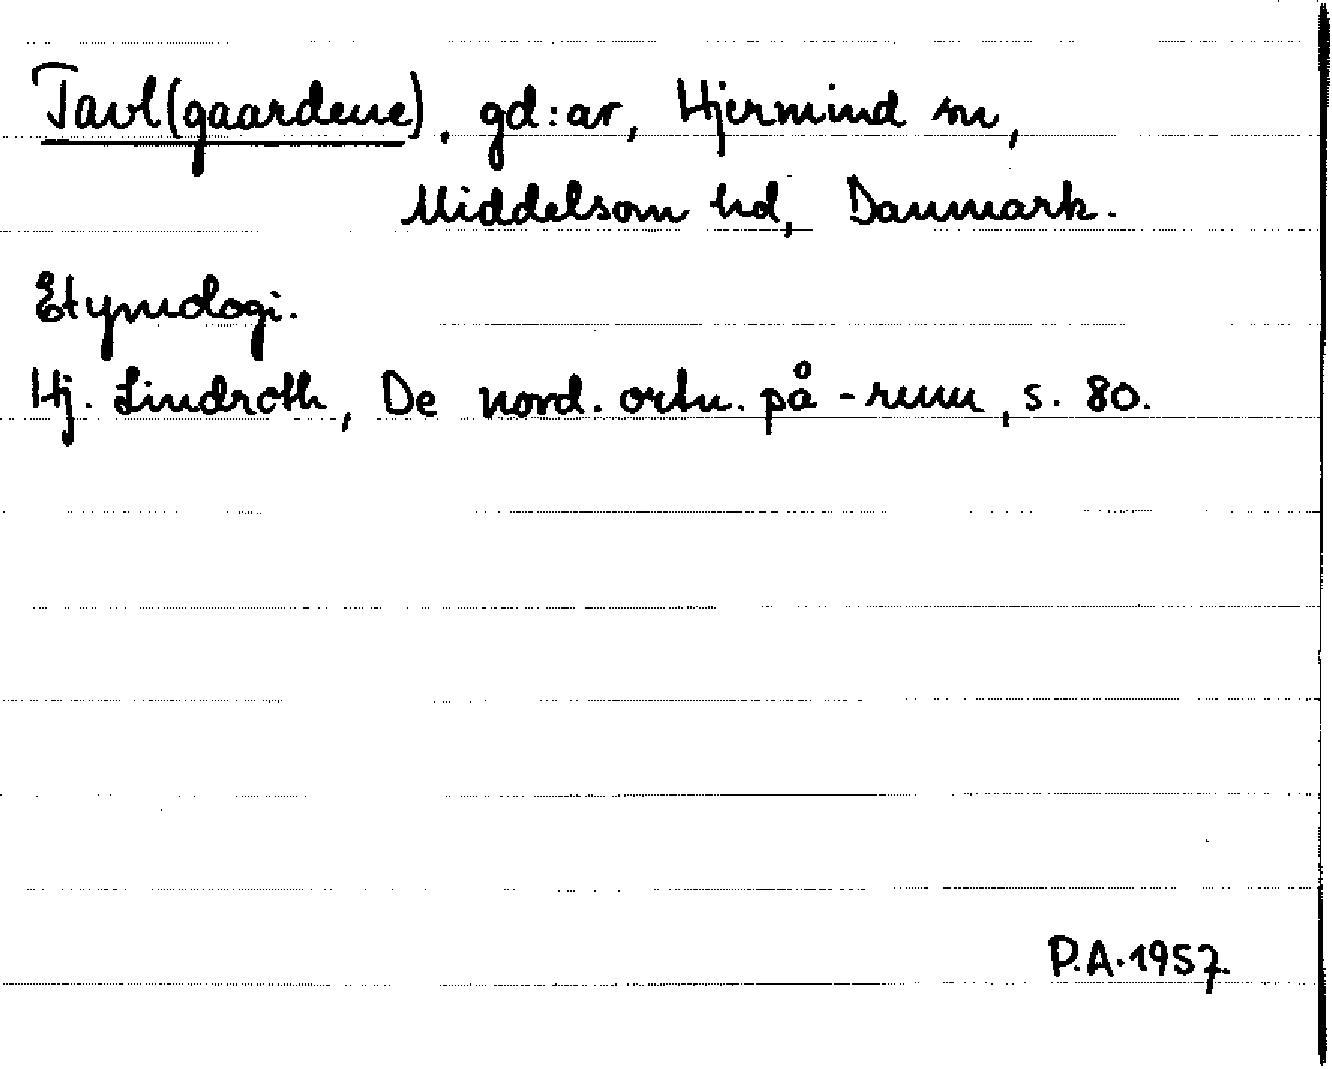 Tavl(gaardene), gd:ar, Hjermind sn,
Middelsom hd, Danmark.
Etymologi.
Hj. Lindroth, De nord. ortn. på -rum, s. 80.
P.A. 1957.